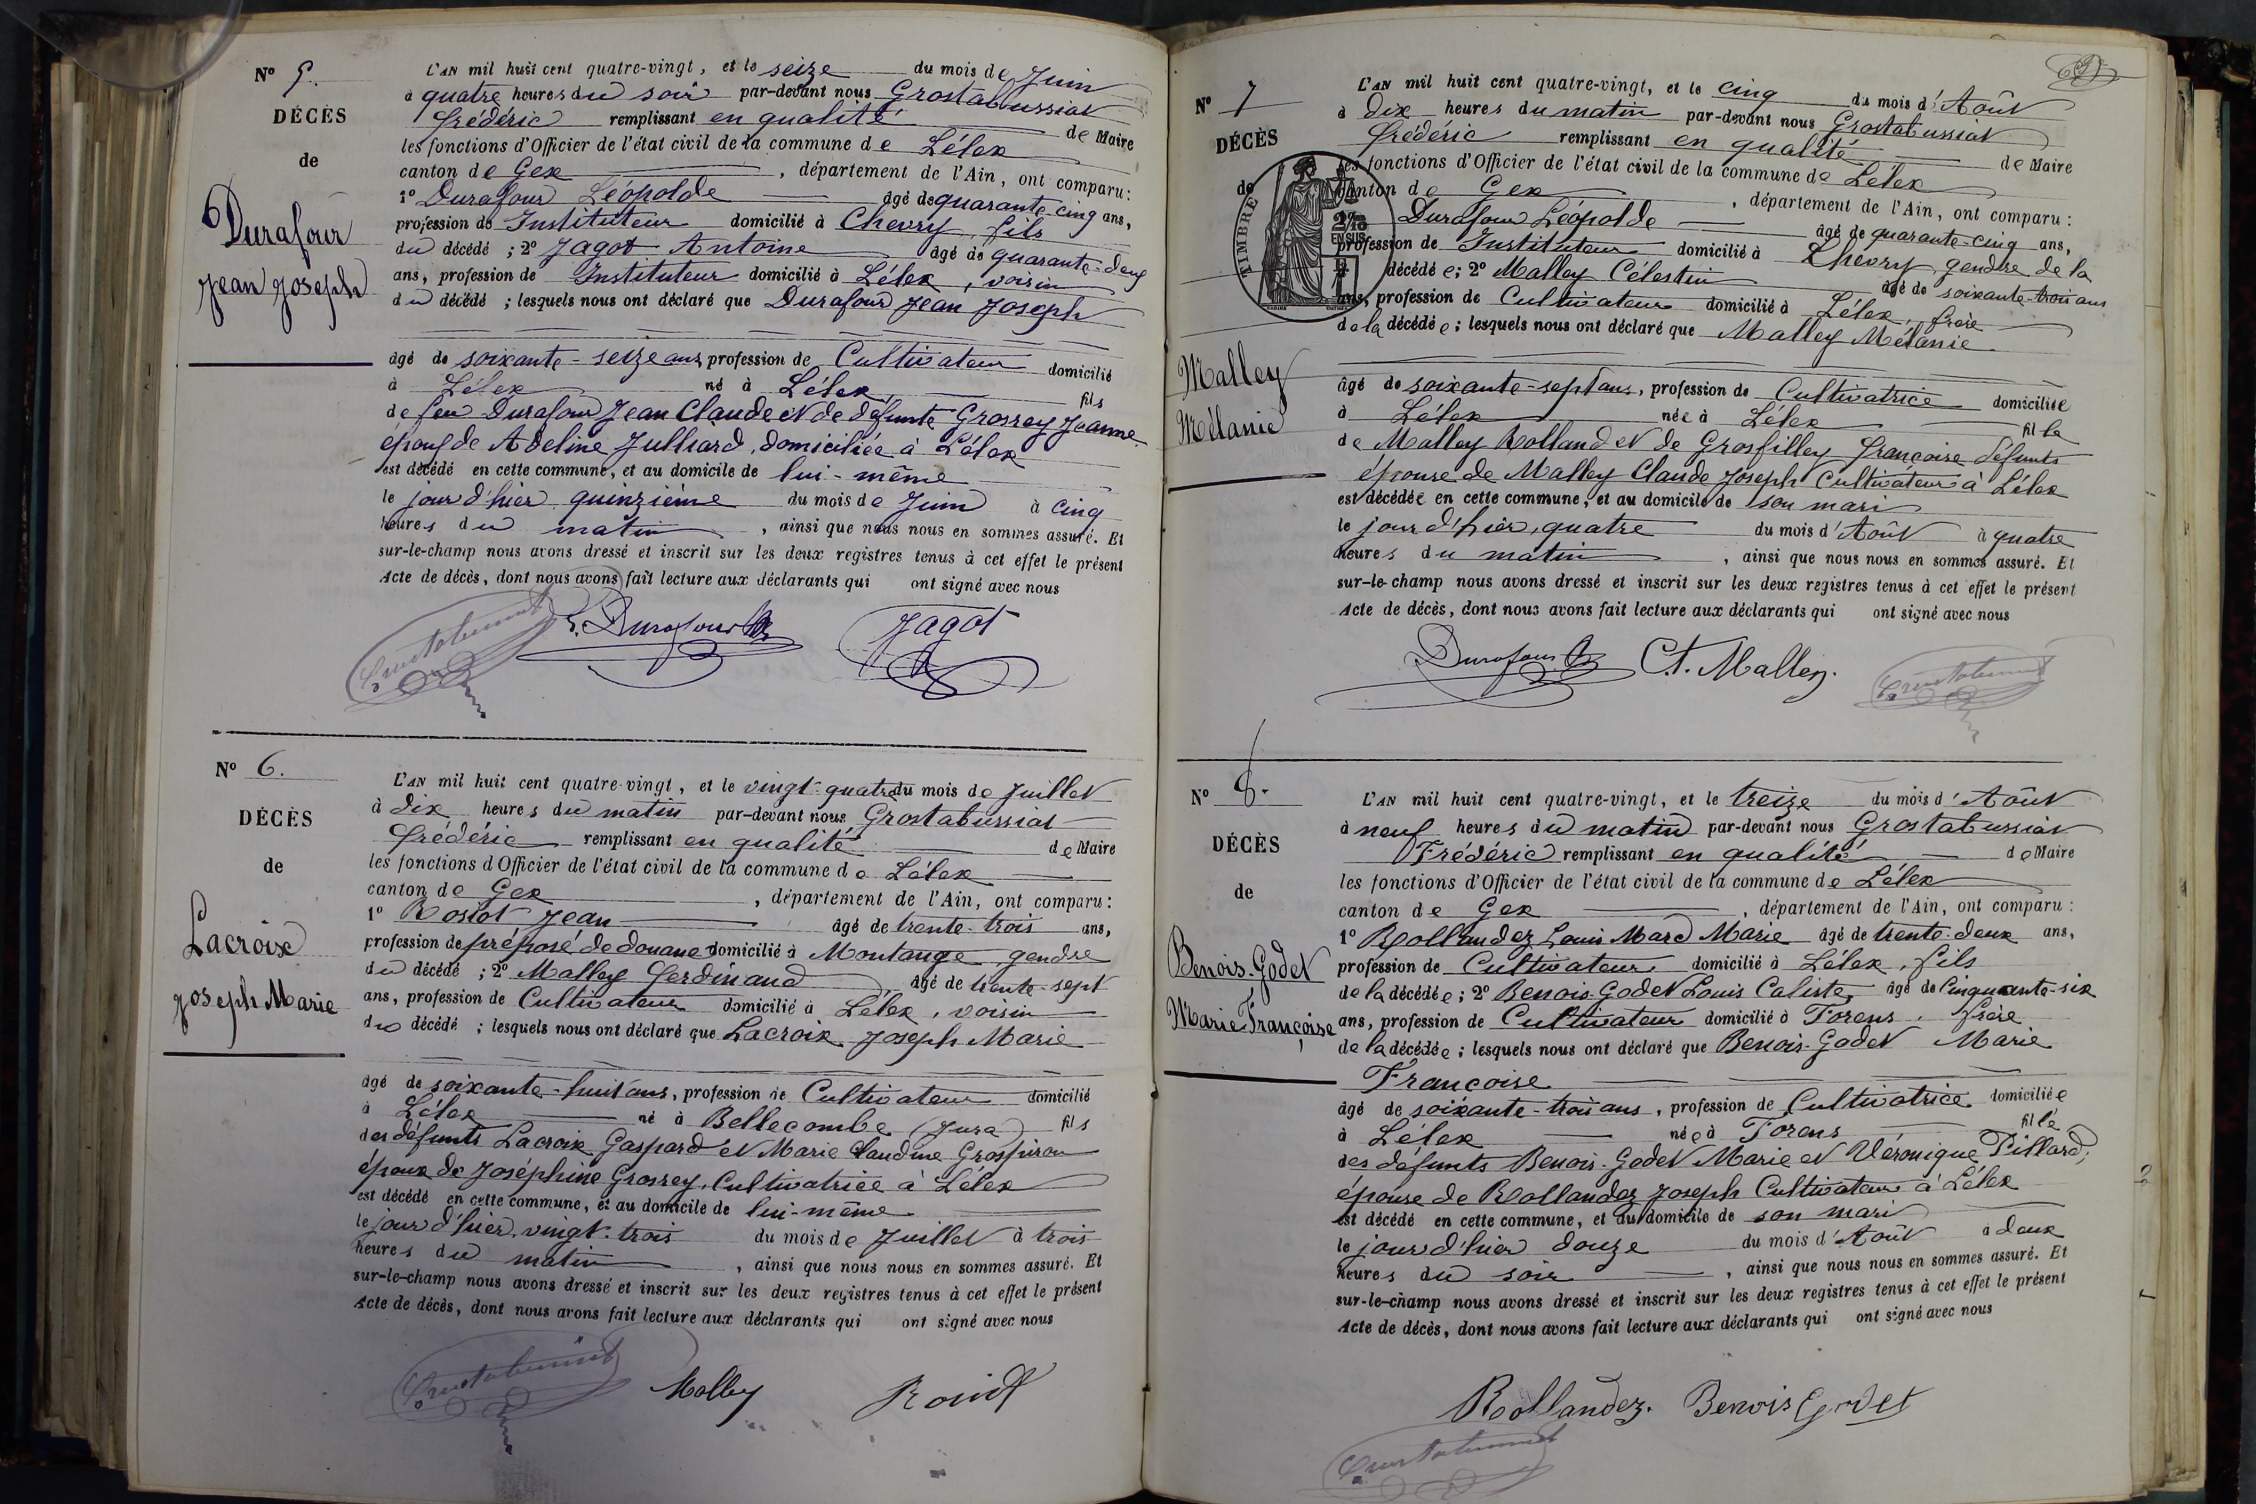 Nº 5.
DÉCÈS
de
Durafour
Jean Joseph
L'AN mil huit cent quatre-vingt, et le seize du mois de Juin
à quatre heures du soir par-devant nous Grostabussiat
Frédéric remplissant en qualité de Maire
les fonctions d'Officier de l'état civil de la commune de Lélex
canton de Gex, département de l'Ain, ont comparu:
1º Durafour Léopolde âgé de quarante-cinq ans,
profession de Instituteur domicilié à Chevry, fils
du décédé ; 2º Jagot Antoine âgé de quarante-deux
ans, profession de Instituteur domicilié à Lélex, voisin
du décédé ; lesquels nous ont déclaré que Durafour Jean Joseph
âgé de soixante-seize ans, profession de Cultivateur domicilié
à Lélex né à Lélex fils
de feu Durafour Jean Claude et de défunte Grossrey Jeanne
époux de Adeline Julliard, domiciliée à Lélex
est décédé en cette commune, et au domicile de lui-même
le jour d'hier quinzième du mois de Juin à cinq
heures du matin, ainsi que nous nous en sommes assuré. Et
sur-le-champ nous avons dressé et inscrit sur les deux registres tenus à cet effet le présent
Acte de décès, dont nous avons fait lecture aux déclarants qui ont signé avec nous
Grostabussiat Durafour Jagot
Nº 6.
DÉCÈS
de
Lacroix
Joseph Marie
L'AN mil huit cent quatre-vingt, et le vingt-quatre du mois de Juillet
à dix heures du matin par-devant nous Grostabussiat
Frédéric remplissant en qualité de Maire
les fonctions d'Officier de l'état civil de la commune de Lélex
canton de Gex, département de l'Ain, ont comparu:
1º Rostot Jean âgé de trente-trois ans,
profession de préposé de douane domicilié à Montange, gendre
du décédé ; 2º Malley Ferdinand âgé de trente-sept
ans, profession de Cultivateur domicilié à Lélex, voisin
du décédé ; lesquels nous ont déclaré que Lacroix Joseph Marie
âgé de soixante-huit ans, profession de Cultivateur domicilié
à Lélex né à Bellecombe (Jura) fils
des défunts Lacroix Gaspard et Marie Claudine Grospiron
époux de Joséphine Grosrey, Cultivatrice à Lélex
est décédé en cette commune, et au domicile de lui-même
le jour d'hier, vingt-trois du mois de Juillet à trois
heures du matin, ainsi que nous nous en sommes assuré. Et
sur-le-champ nous avons dressé et inscrit sur les deux registres tenus à cet effet le présent
Acte de décès, dont nous avons fait lecture aux déclarants qui ont signé avec nous
Grostabussiat Malley
Nº 7
DÉCÈS
de
TIMBRE
2/10
EN SUS
Malley
Mélanie
L'AN mil huit cent quatre-vingt, et le cinq du mois d'Août
à dix heures du matin par-devant nous Grostabussiat
Frédéric remplissant en qualité de Maire
les fonctions d'Officier de l'état civil de la commune de Lélex
canton de Gex, département de l'Ain, ont comparu :
Durafour Léopolde âgé de quarante-cinq ans,
profession de Instituteur domicilié à Chevry, gendre de la
décédée ; 2º Malley Célestin âgé de soixante-trois ans
ans, profession de Cultivateur domicilié à Lélex, frère
de la décédée ; lesquels nous ont déclaré que Malley Mélanie
âgé de soixante-sept ans, profession de Cultivatrice domiciliée
à Lélex née à Lélex fille
de Malley Rolland et de Grosfilley Françoise défunts
épouse de Malley Claude Joseph Cultivateur à Lélex
est décédée en cette commune, et au domicile de son mari
le jour d'hier, quatre du mois d'Août à quatre
heures du matin, ainsi que nous nous en sommes assuré. Et
sur-le-champ nous avons dressé et inscrit sur les deux registres tenus à cet effet le présent
Acte de décès, dont nous avons fait lecture aux déclarants qui ont signé avec nous
Durafour Ct. Malley. Grostabussiat
Nº 8.
DÉCÈS
de
Benois-Godet
Marie Françoise
L'AN mil huit cent quatre-vingt, et le treize du mois d'Août
à neuf heures du matin par-devant nous Grostabussiat
Frédéric remplissant en qualité de Maire
les fonctions d'Officier de l'état civil de la commune de Lélex
canton de Gex, département de l'Ain, ont comparu :
1º Rollandez Louis Marc Marie âgé de trente-deux ans,
profession de Cultivateur domicilié à Lélex, fils
de la décédée ; 2º Benois-Godet Louis Caliste, âgé de Cinquante-six
ans, profession de Cultivateur domicilié à Forens, frère
de la décédée ; lesquels nous ont déclaré que Benois-Godet Marie
Françoise
âgé de soixante-trois ans, profession de Cultivatrice domiciliée
à Lélex née à Forens fille
des défunts Benois-Godet Marie et Véronique Pillard,
épouse de Rollandez Joseph Cultivateur à Lélex
est décédé en cette commune, et au domicile de son mari
le jour d'hier douze du mois d'Août à deux
heures du soir, ainsi que nous nous en sommes assuré. Et
sur-le-champ nous avons dressé et inscrit sur les deux registres tenus à cet effet le présent
Acte de décès, dont nous avons fait lecture aux déclarants qui ont signé avec nous
Rollandez. Benois Godet
Grostabussiat